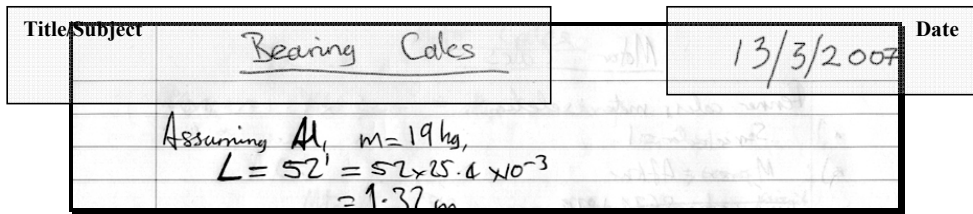 Title/Subject Bearing Calcs 13/3/2007 Date
Assuming Al, m=19kg,
L = 52' = 52x25.4 x10-3
= 1.32 m